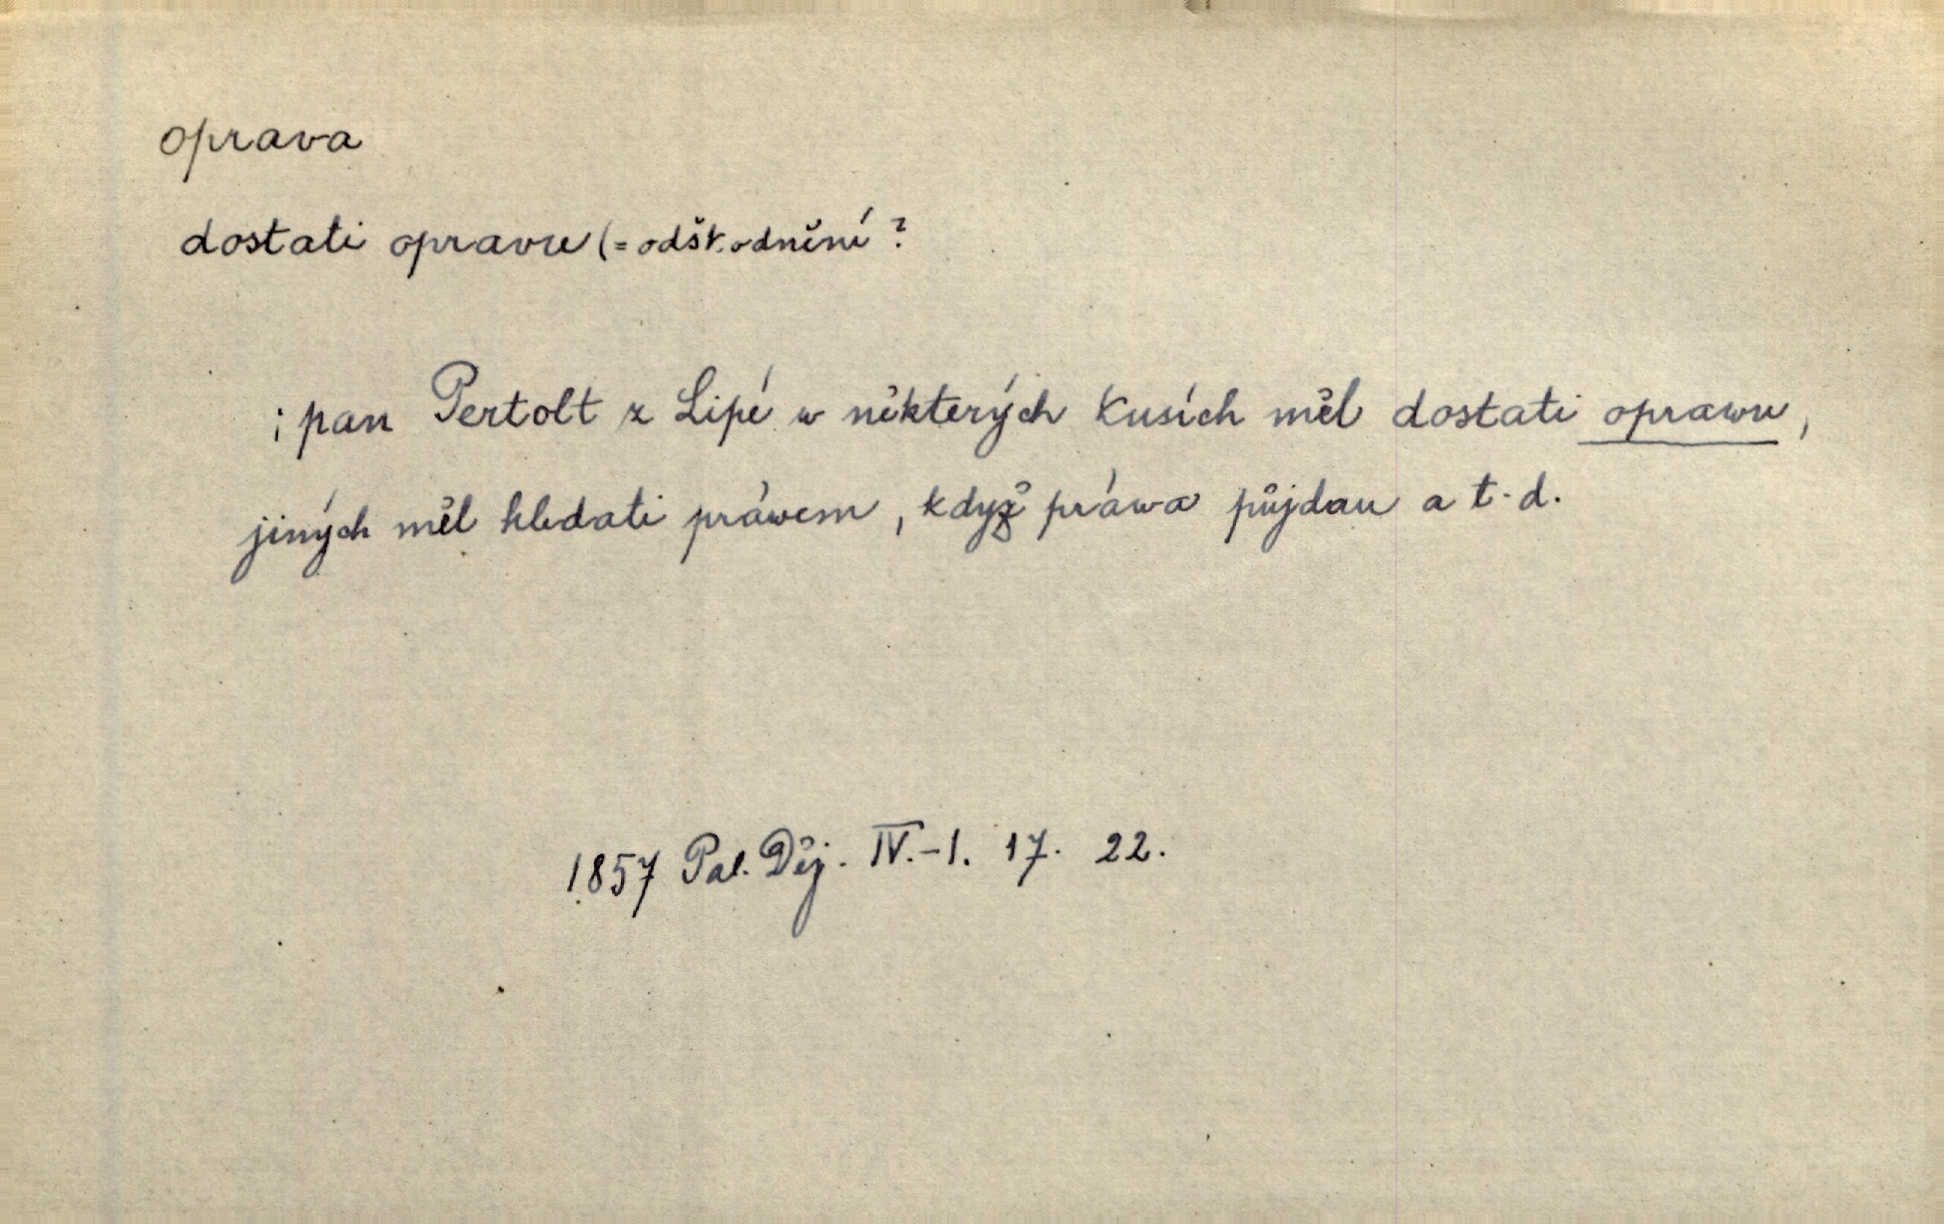 oprava
dostati opravu (= odškodnění ?
; pan Pertolt z Lipé w některých kusích měl dostati oprawu,
jiných měl hledati práwem, když práwa půjdau a t. d.
1857 Pal. Děj. IV.-1. 17. 22.